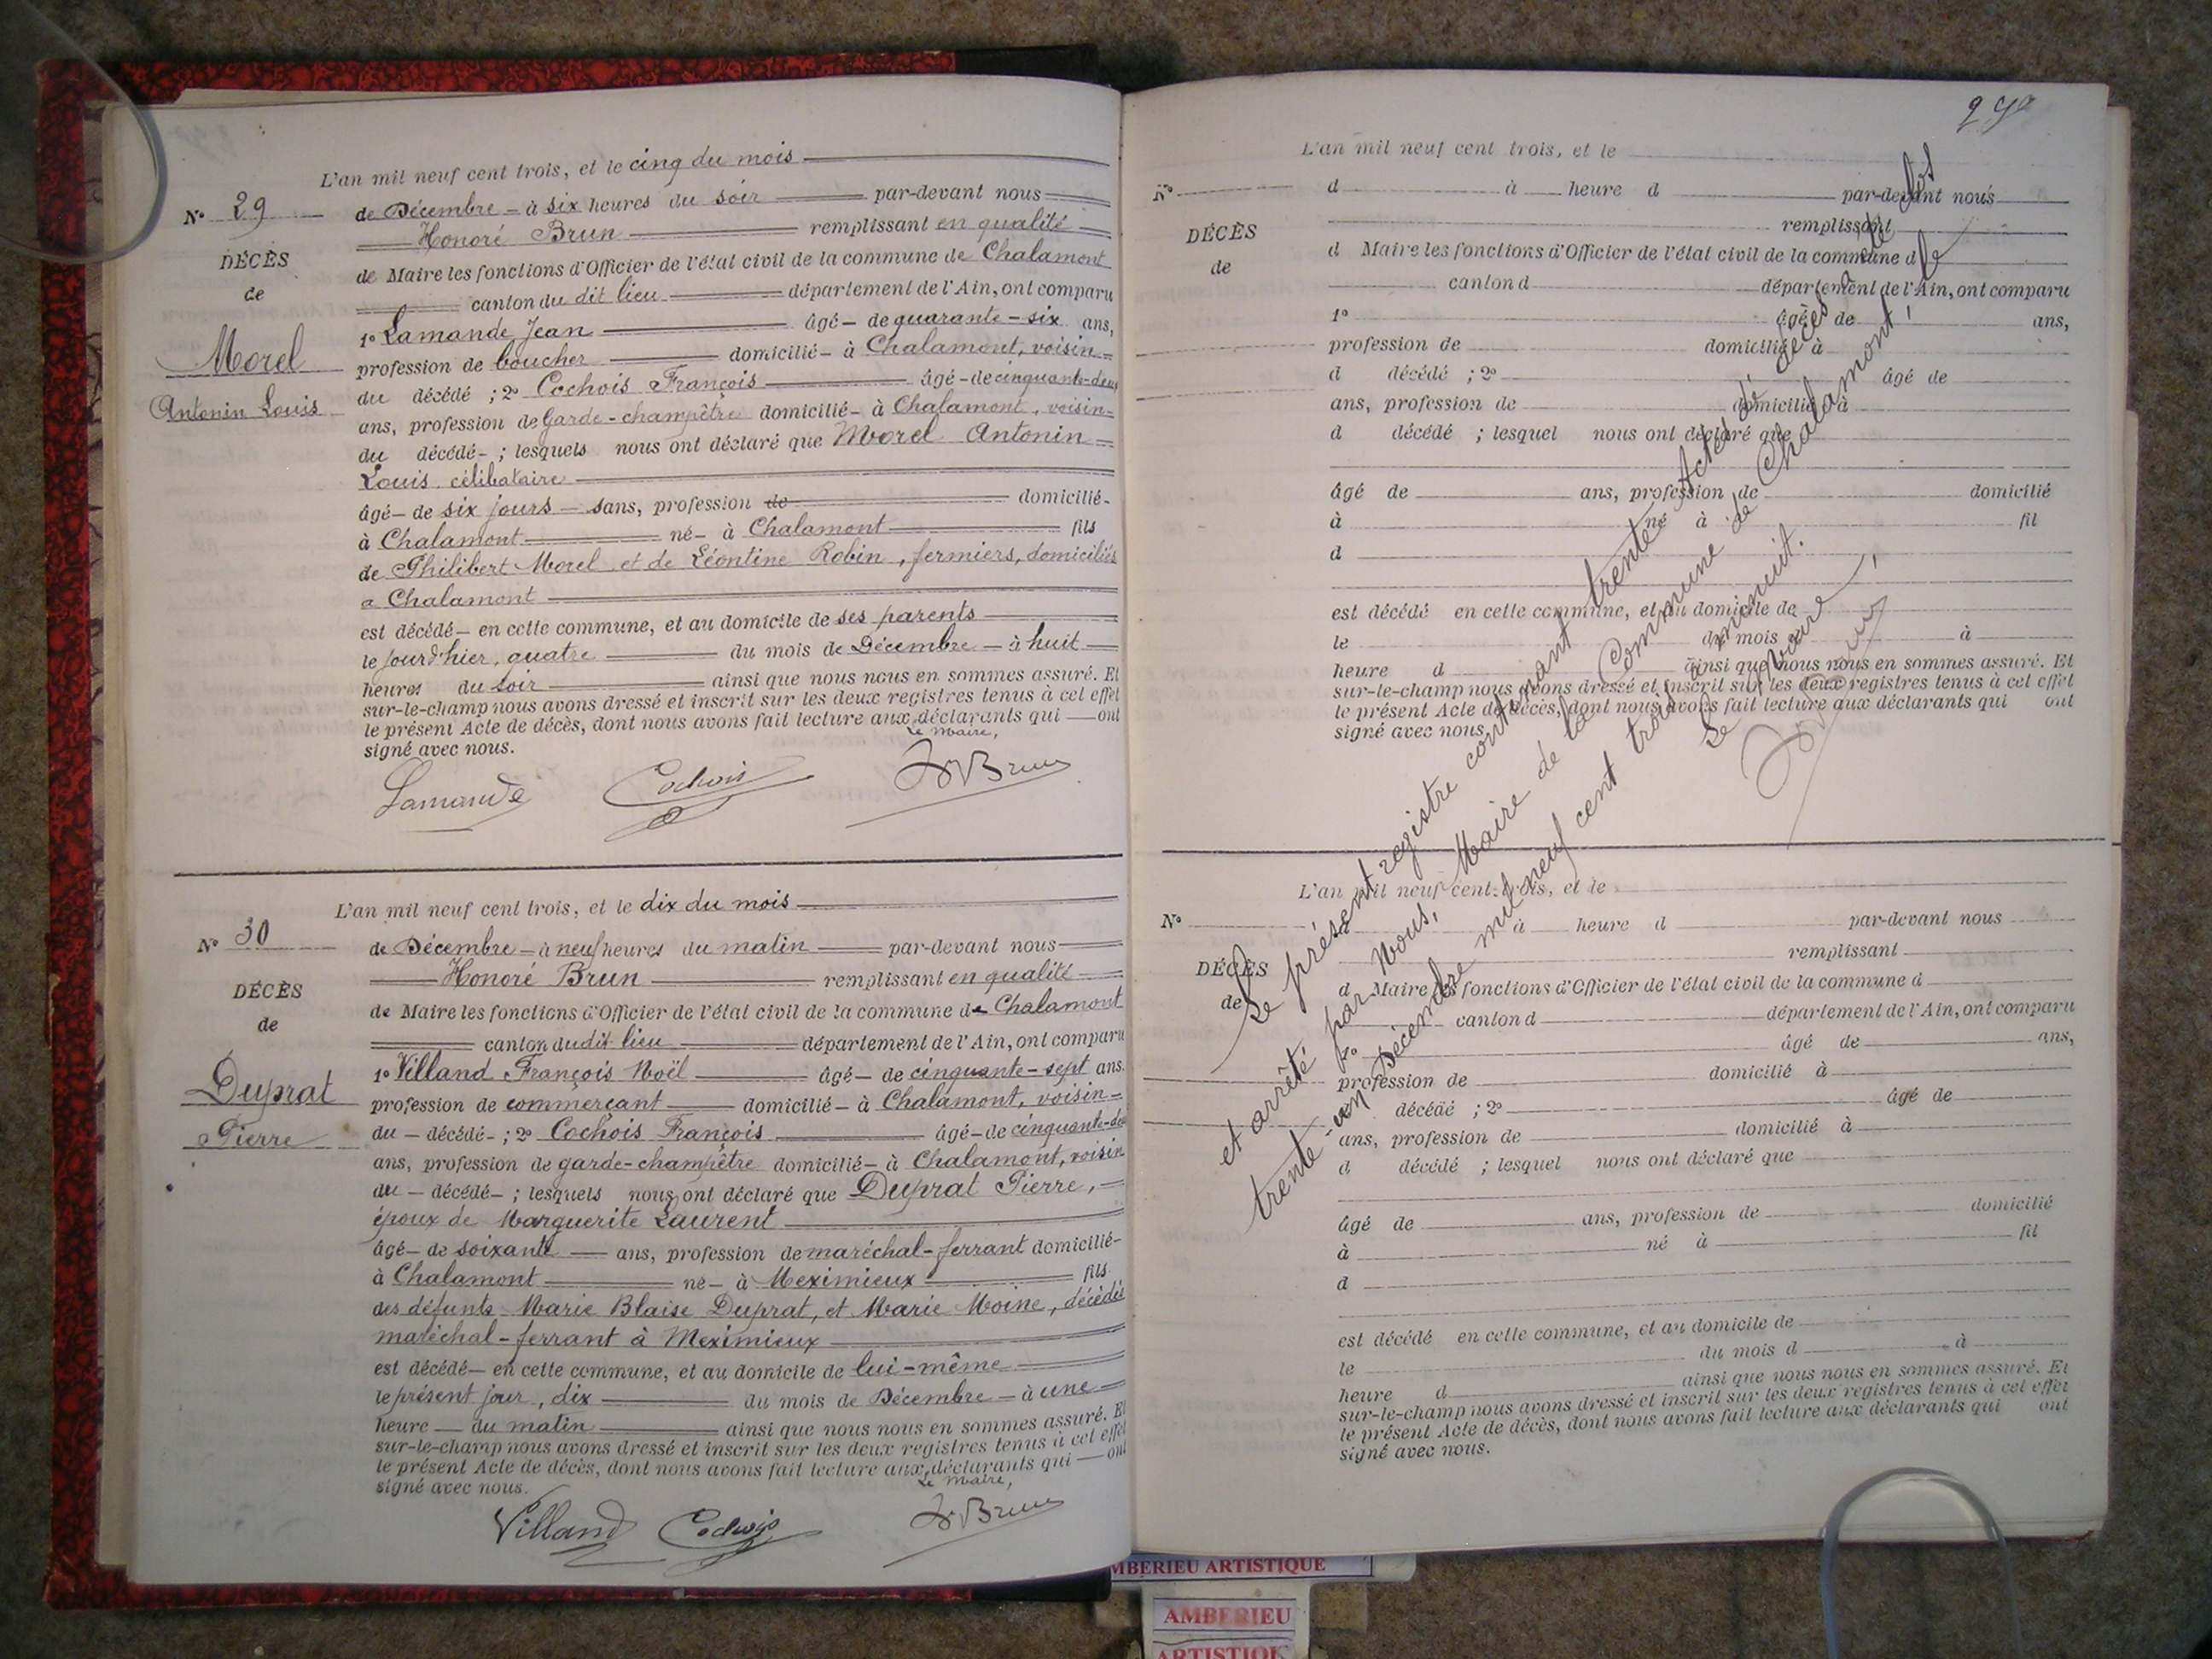 L'an mil neuf cent trois, et le cinq du mois
N° 29 de Décembre - à six heures du soir par-devant nous
Honoré Brun remplissant en qualité
DÉCÈS
de
de Maire les fonctions d'Officier de l'état civil de la commune de Chalamont
canton du dit lieu département de l'Ain, ont comparu
1° Lamande Jean âgé - de quarante - six ans,
Morel
profession de boucher domicilié - à Chalamont, voisin
du décédé ; 2° Cochois François âgé - de cinquante-deux
Antonin Louis
ans, profession de Garde - champêtre domicilié - à Chalamont, voisin
du décédé - ; lesquels nous ont déclaré que Morel Antonin
Louis célibataire
âgé - de six jours - sans, profession de domicilié -
à Chalamont né - à Chalamont fils
de Philibert Morel et de Léontine Robin, fermiers, domiciliés
a Chalamont
est décédé - en cette commune, et au domicile de ses parents
le jourd'hier, quatre du mois de Décembre - à huit
heures du soir ainsi que nous nous en sommes assuré. Et
sur-le-champ nous avons dressé et inscrit sur les deux registres tenus à cet effet
le présent Acte de décès, dont nous avons fait lecture aux déclarants qui ont
signé avec nous.
Le Maire,
Lamande Cochois Brun
L'an mil neuf cent trois, et le dix du mois
N° 30 de Décembre - à neuf heures du matin par-devant nous
Honoré Brun remplissant en qualité
DÉCÈS
de
de Maire les fonctions d'Officier de l'état civil de la commune de Chalamont
canton du dit lieu département de l'Ain, ont comparu
1° Villand François Noël âgé - de cinquante - sept ans.
Duprat
profession de commerçant domicilié - à Chalamont, voisin -
du - décédé - ; 2° Cochois François âgé - de cinquante-de
Pierre
ans, profession de garde-champêtre domicilié - à Chalamont, voisin
du - décédé - ; lesquels nous ont déclaré que Duprat Pierre, -
époux de Marguerite Laurent
âgé - de soixante ans, profession de maréchal-ferrant domicilié -
à Chalamont né - à Meximieux fils
des défunts Marie Blaise Duprat, et Marie Moine, décédés
maréchal-ferrant à Meximieux
est décédé - en cette commune, et au domicile de lui-même
le présent jour, dix du mois de Décembre - à une
heure - du matin ainsi que nous nous en sommes assuré. Et
sur-le-champ nous avons dressé et inscrit sur les deux registres tenus à cet effet
le présent Acte de décès, dont nous avons fait lecture aux déclarants qui ont
signé avec nous.
Le Maire,
Villand Cochois Brun
L'an mil neuf cent trois, et le
N° d à heure d par-devant nous
remplissant
DÉCÈS
de
d Maire les fonctions d'Officier de l'état civil de la commune d
canton d département de l'Ain, ont comparu
1° âgé de ans,
profession de domicilié à
d décédé ; 2° âgé de
ans, profession de domicilié à
d décédé ; lesquel nous ont déclaré que
âgé de ans, profession de domicilié
à né à fil
d
est décédé en cette commune, et au domicile de
le du mois à
heure d ainsi que nous nous en sommes assuré. Et
sur-le-champ nous avons dressé et inscrit sur les deux registres tenus à cet effet
le présent Acte de décès, dont nous avons fait lecture aux déclarants qui ont
signé avec nous.
Le présent registre contenant trente Actes de décès a été clos
et arrêté par Nous, Maire de la Commune de Chalamont, le
trente-un Décembre mil neuf cent trois à minuit.
Le Maire,
L'an mil neuf cent trois, et le
N° à heure d par-devant nous
remplissant
DÉCÈS
de
d Maire les fonctions d'Officier de l'état civil de la commune d
canton d département de l'Ain, ont comparu
1° âgé de ans,
profession de domicilié à
décédé ; 2° âgé de
ans, profession de domicilié à
d décédé ; lesquel nous ont déclaré que
âgé de ans, profession de domicilié
à né à fil
d
est décédé en cette commune, et au domicile de
le du mois d à
heure d ainsi que nous nous en sommes assuré. Et
sur-le-champ nous avons dressé et inscrit sur les deux registres tenus à cet effet
le présent Acte de décès, dont nous avons fait lecture aux déclarants qui ont
signé avec nous.
MBERIEU ARTISTIQUE
AMBERIEU